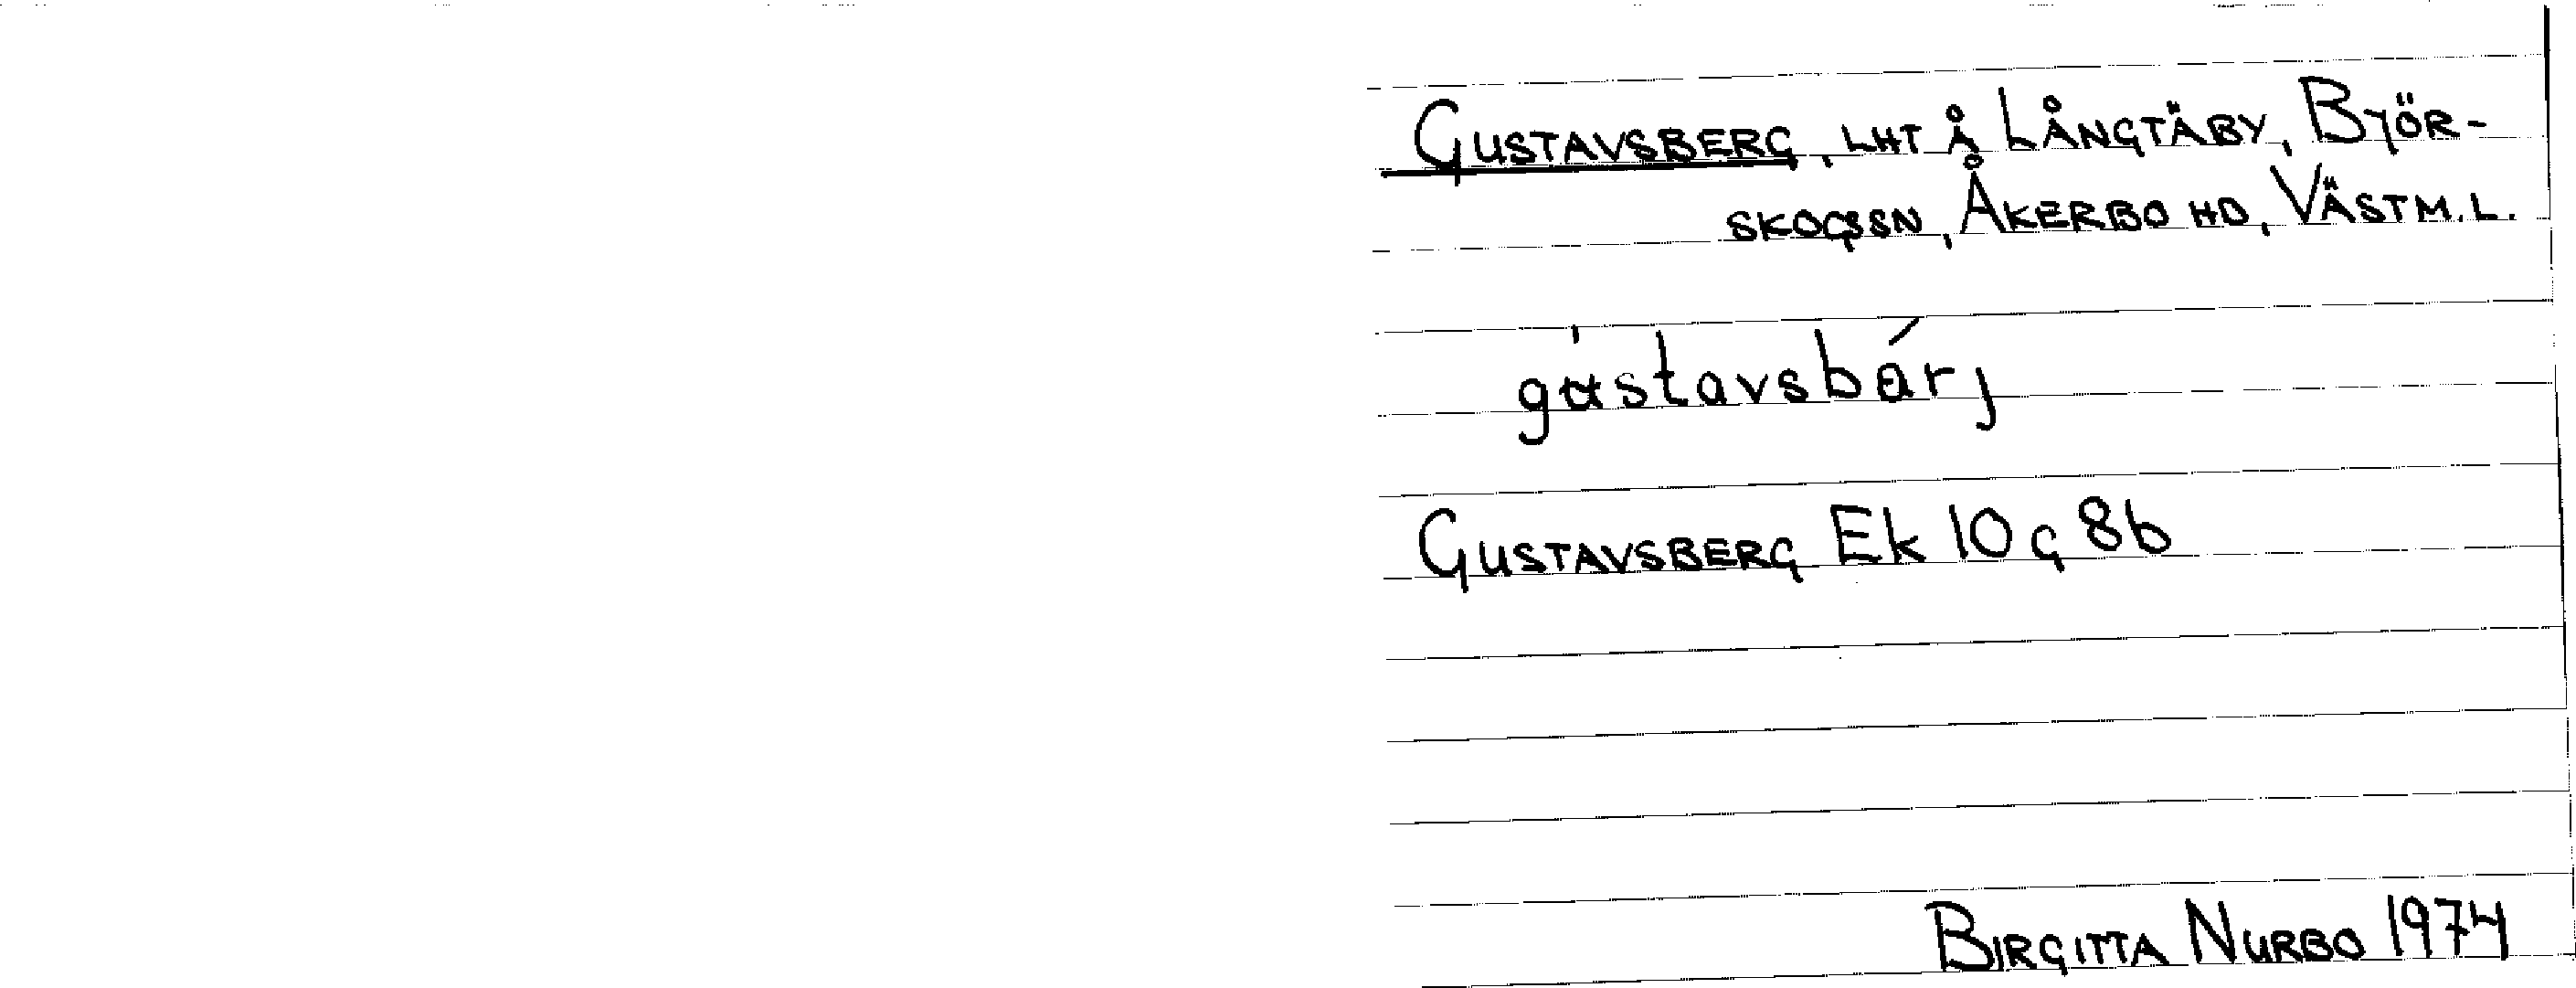 GUSTAVSBERG, LHT Å LÅNGTÄBY, BJÖR-
SKOGSSN, ÅKERBO HD, VÄSTM.L.
gustavsbárj
GUSTAVSBERG Ek 10 G 8b
BIRGITTA NURBO 1974